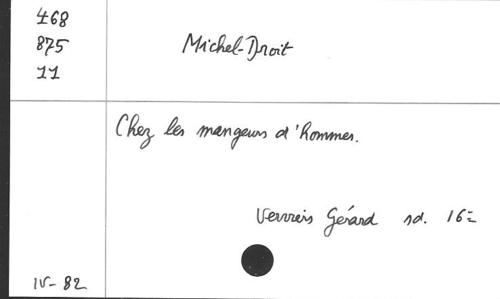 468
875
11
Michel-Droit
Chez les mangeurs d'hommes.
Gérard sd. 16=
IV- 82